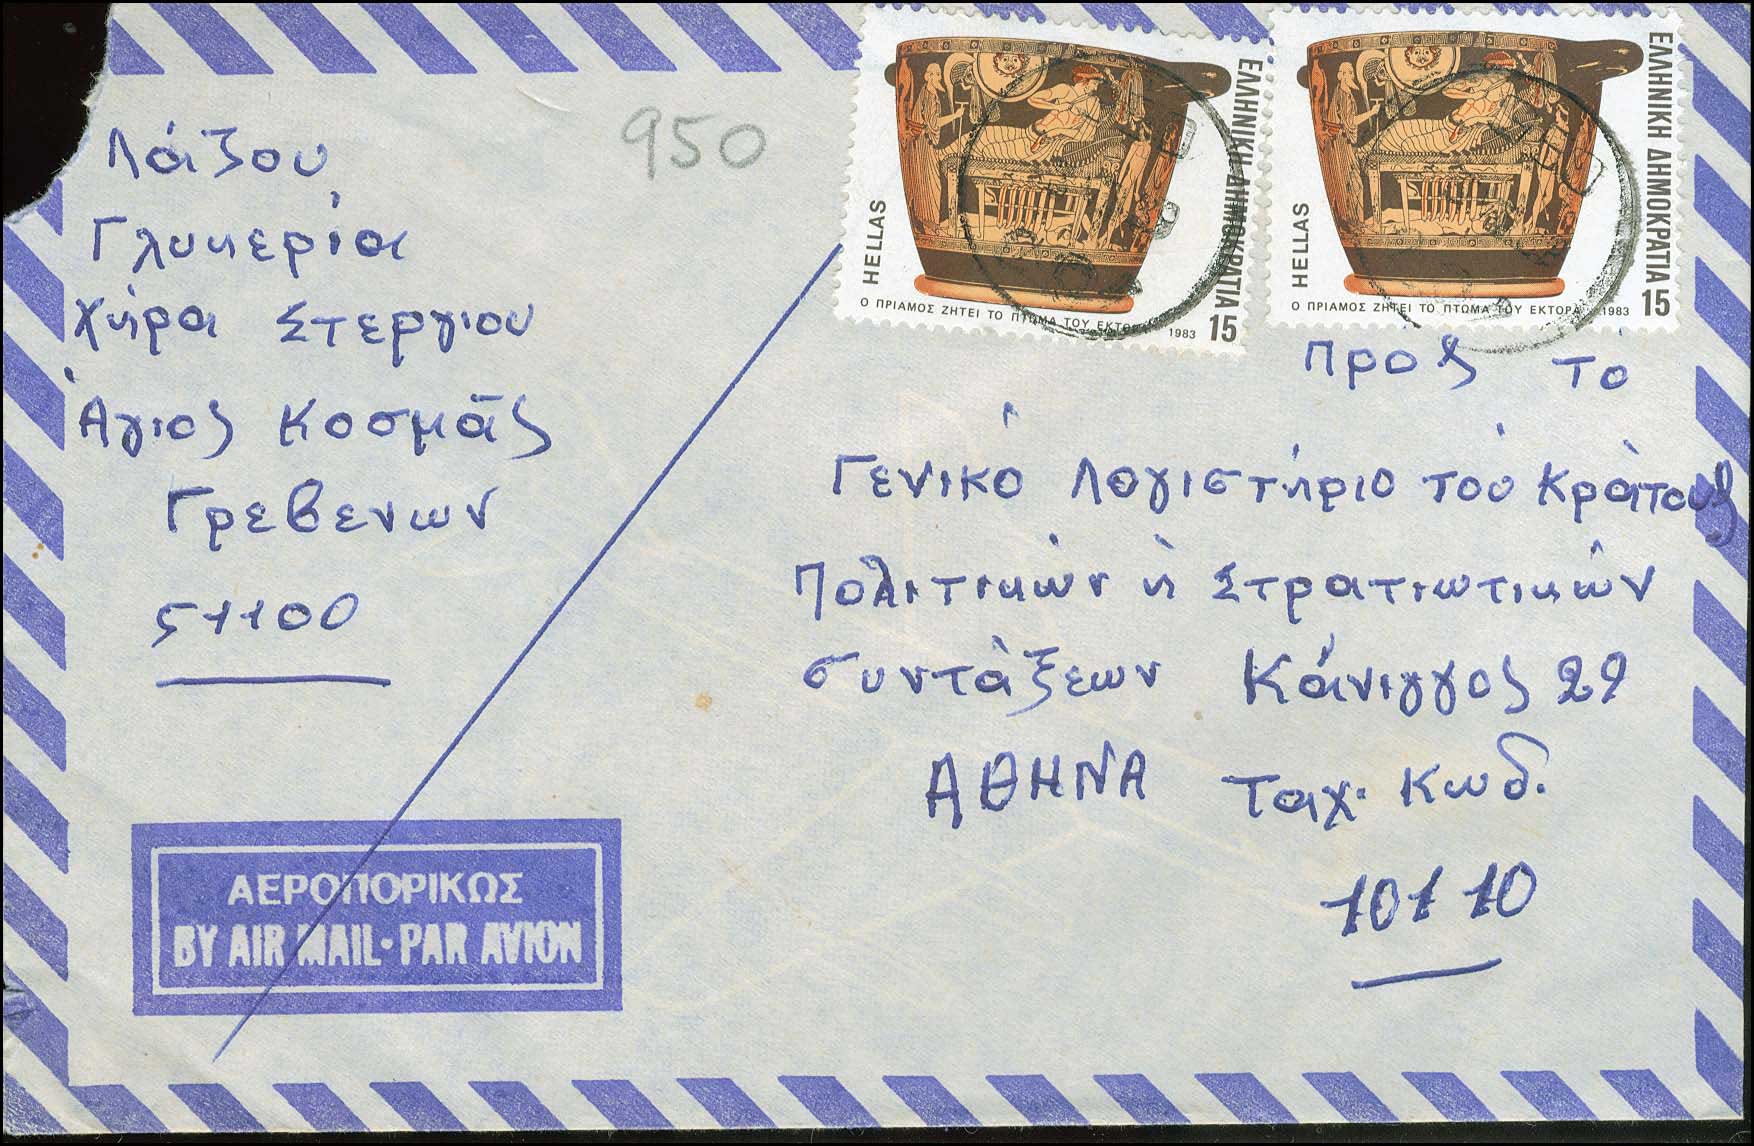 Λάζου
Γλυκερία
χήρα Στεργίου
Άγιος Κοσμάς
Γρεβενων
51100
950
ΕΛΛΗΝΙΚΗ ΔΗΜΟΚΡΑΤΙΑ
HELLAS
Ο ΠΡΙΑΜΟΣ ΖΗΤΕΙ ΤΟ ΠΤΩΜΑ ΤΟΥ ΕΚΤΟΡΑ 1983 15
ΕΛΛΗΝΙΚΗ ΔΗΜΟΚΡΑΤΙΑ
HELLAS
Ο ΠΡΙΑΜΟΣ ΖΗΤΕΙ ΤΟ ΠΤΩΜΑ ΤΟΥ ΕΚΤΟΡΑ 1983 15
Προς τό
Γενικό Λογιστήριο τού Κράτους
Πολιτικών ή Στρατιωτικών
συντάξεων Κάνιγγος 29
ΑΘΗΝΑ Ταχ. Κωδ.
10110
ΑΕΡΟΠΟΡΙΚΩΣ
BY AIR MAIL·PAR AVION